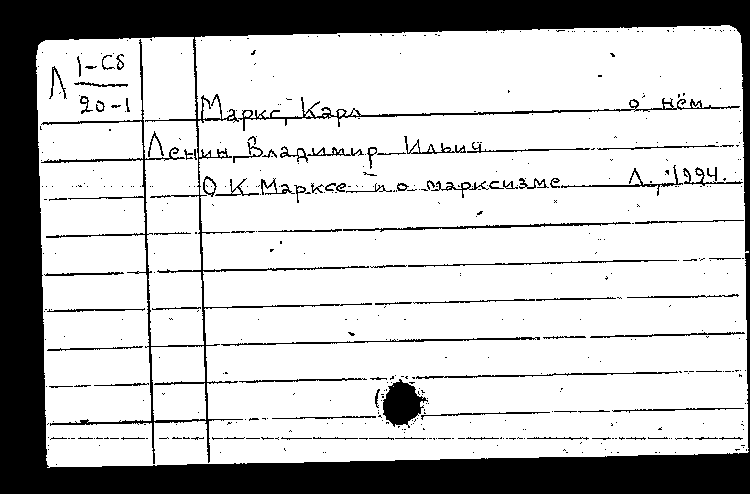 Л 1-С8
20-1
Маркс, Карл о нём.
Ленин, Владимир Ильич
О К. Марксе и о марксизме Л., 1924.